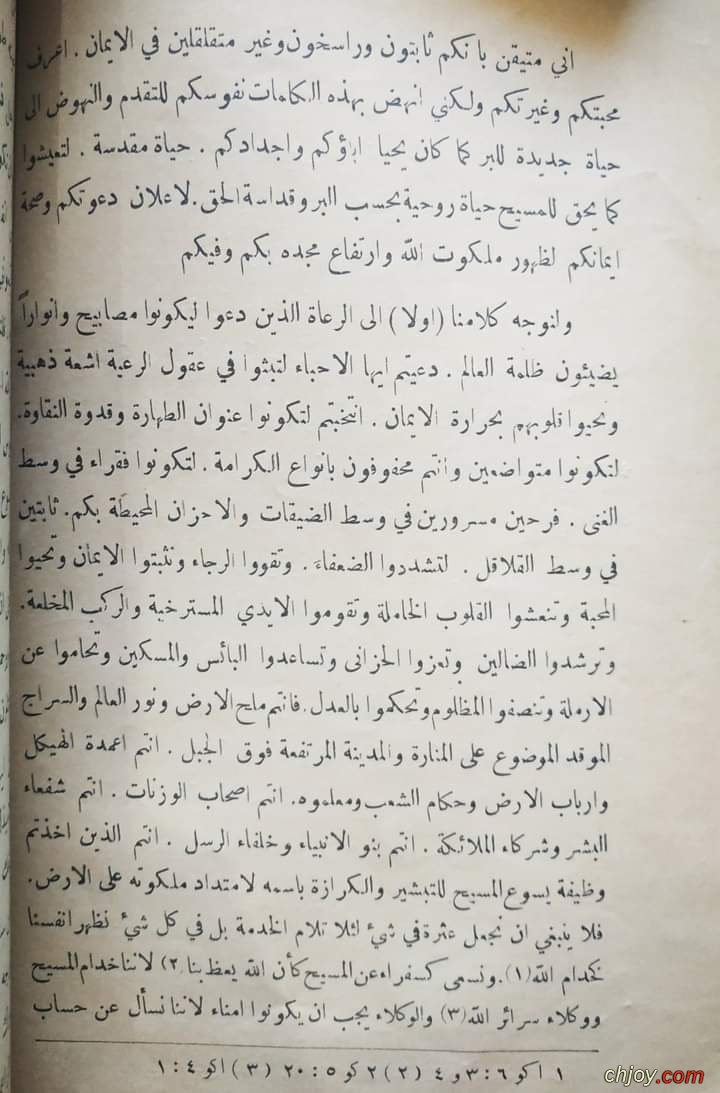 اني متيقن بانكم ثابتون وراسخون وغير متقلقلين في الايمان . اعرف
محبتكم وغيرتكم ولكني انهض بهذه الكلمات نفوسكم للتقدم والنهوض الى
حياة جديدة للبر كما كان يحيا اباؤكم واجدادكم . حياة مقدسة . لتعيشوا
كما يحق للمسيح حياة روحية بحسب البر وقداسة الحق . لاعلان دعوتكم وصحة
ايمانكم لظهور ملكوت الله وارتفاع مجده بكم وفيكم
ولنوجه كلامنا (اولا) الى الرعاة الذين دعوا ليكونوا مصابيح وانواراً
يضيئون ظلمة العالم . دعيتم ايها الاحباء لتبثوا في عقول الرعية اشعة ذهبية
وتحيوا قلوبهم بحرارة الايمان . انتخبتم لتكونوا عنوان الطهارة وقدوة النقاوة.
لتكونوا متواضعين وانتم محفوفون بانواع الكرامة . لتكونوا فقراء في وسط
الغنى . فرحين مسرورين في وسط الضيقات والاحزان المحيطة بكم. ثابتين
في وسط القلاقل . لتشددوا الضعفاء . وتقووا الرجاء وتثبتوا الايمان وتحيوا
المحبة وتنعشوا القلوب الخاملة وتقوموا الايدي المسترخية والركب المخلعة.
وترشدوا الضالين وتعزوا الحزانى وتساعدوا البائس والمسكين وتحاموا عن
الارملة وتنصفوا المظلوم وتحكموا بالعدل . فانتم ملح الارض ونور العالم والسراج
الموقد الموضوع على المنارة والمدينة المرتفعة فوق الجبل . انتم اعمدة الهيكل
وارباب الارض وحكام الشعب ومعلموه. انتم اصحاب الوزنات . انتم شفعاء
البشر وشركاء الملائكة . انتم بنو الانبياء وخلفاء الرسل . انتم الذين اخذتم
وظيفة يسوع المسيح للتبشير والكرازة باسمه لامتداد ملكوته على الارض.
فلا ينبغي ان نجعل عثرة في شيء لئلا تلام الخدمة بل في كل شيء نظهر انفسنا
كخدام الله (١) . ونسعى كسفراء عن المسيح كأن الله يعظ بنا ٢) لاننا خدام المسيح
ووكلاء سرائر الله (٣) والوكلاء يجب ان يكونوا امناء لاننا نسأل عن حساب
١ اكو ٦ : ٣ و ٤ (٢) ٢ كو ٥ : ٢٠ (٣) اكو ٤ : ١
chjoy.com